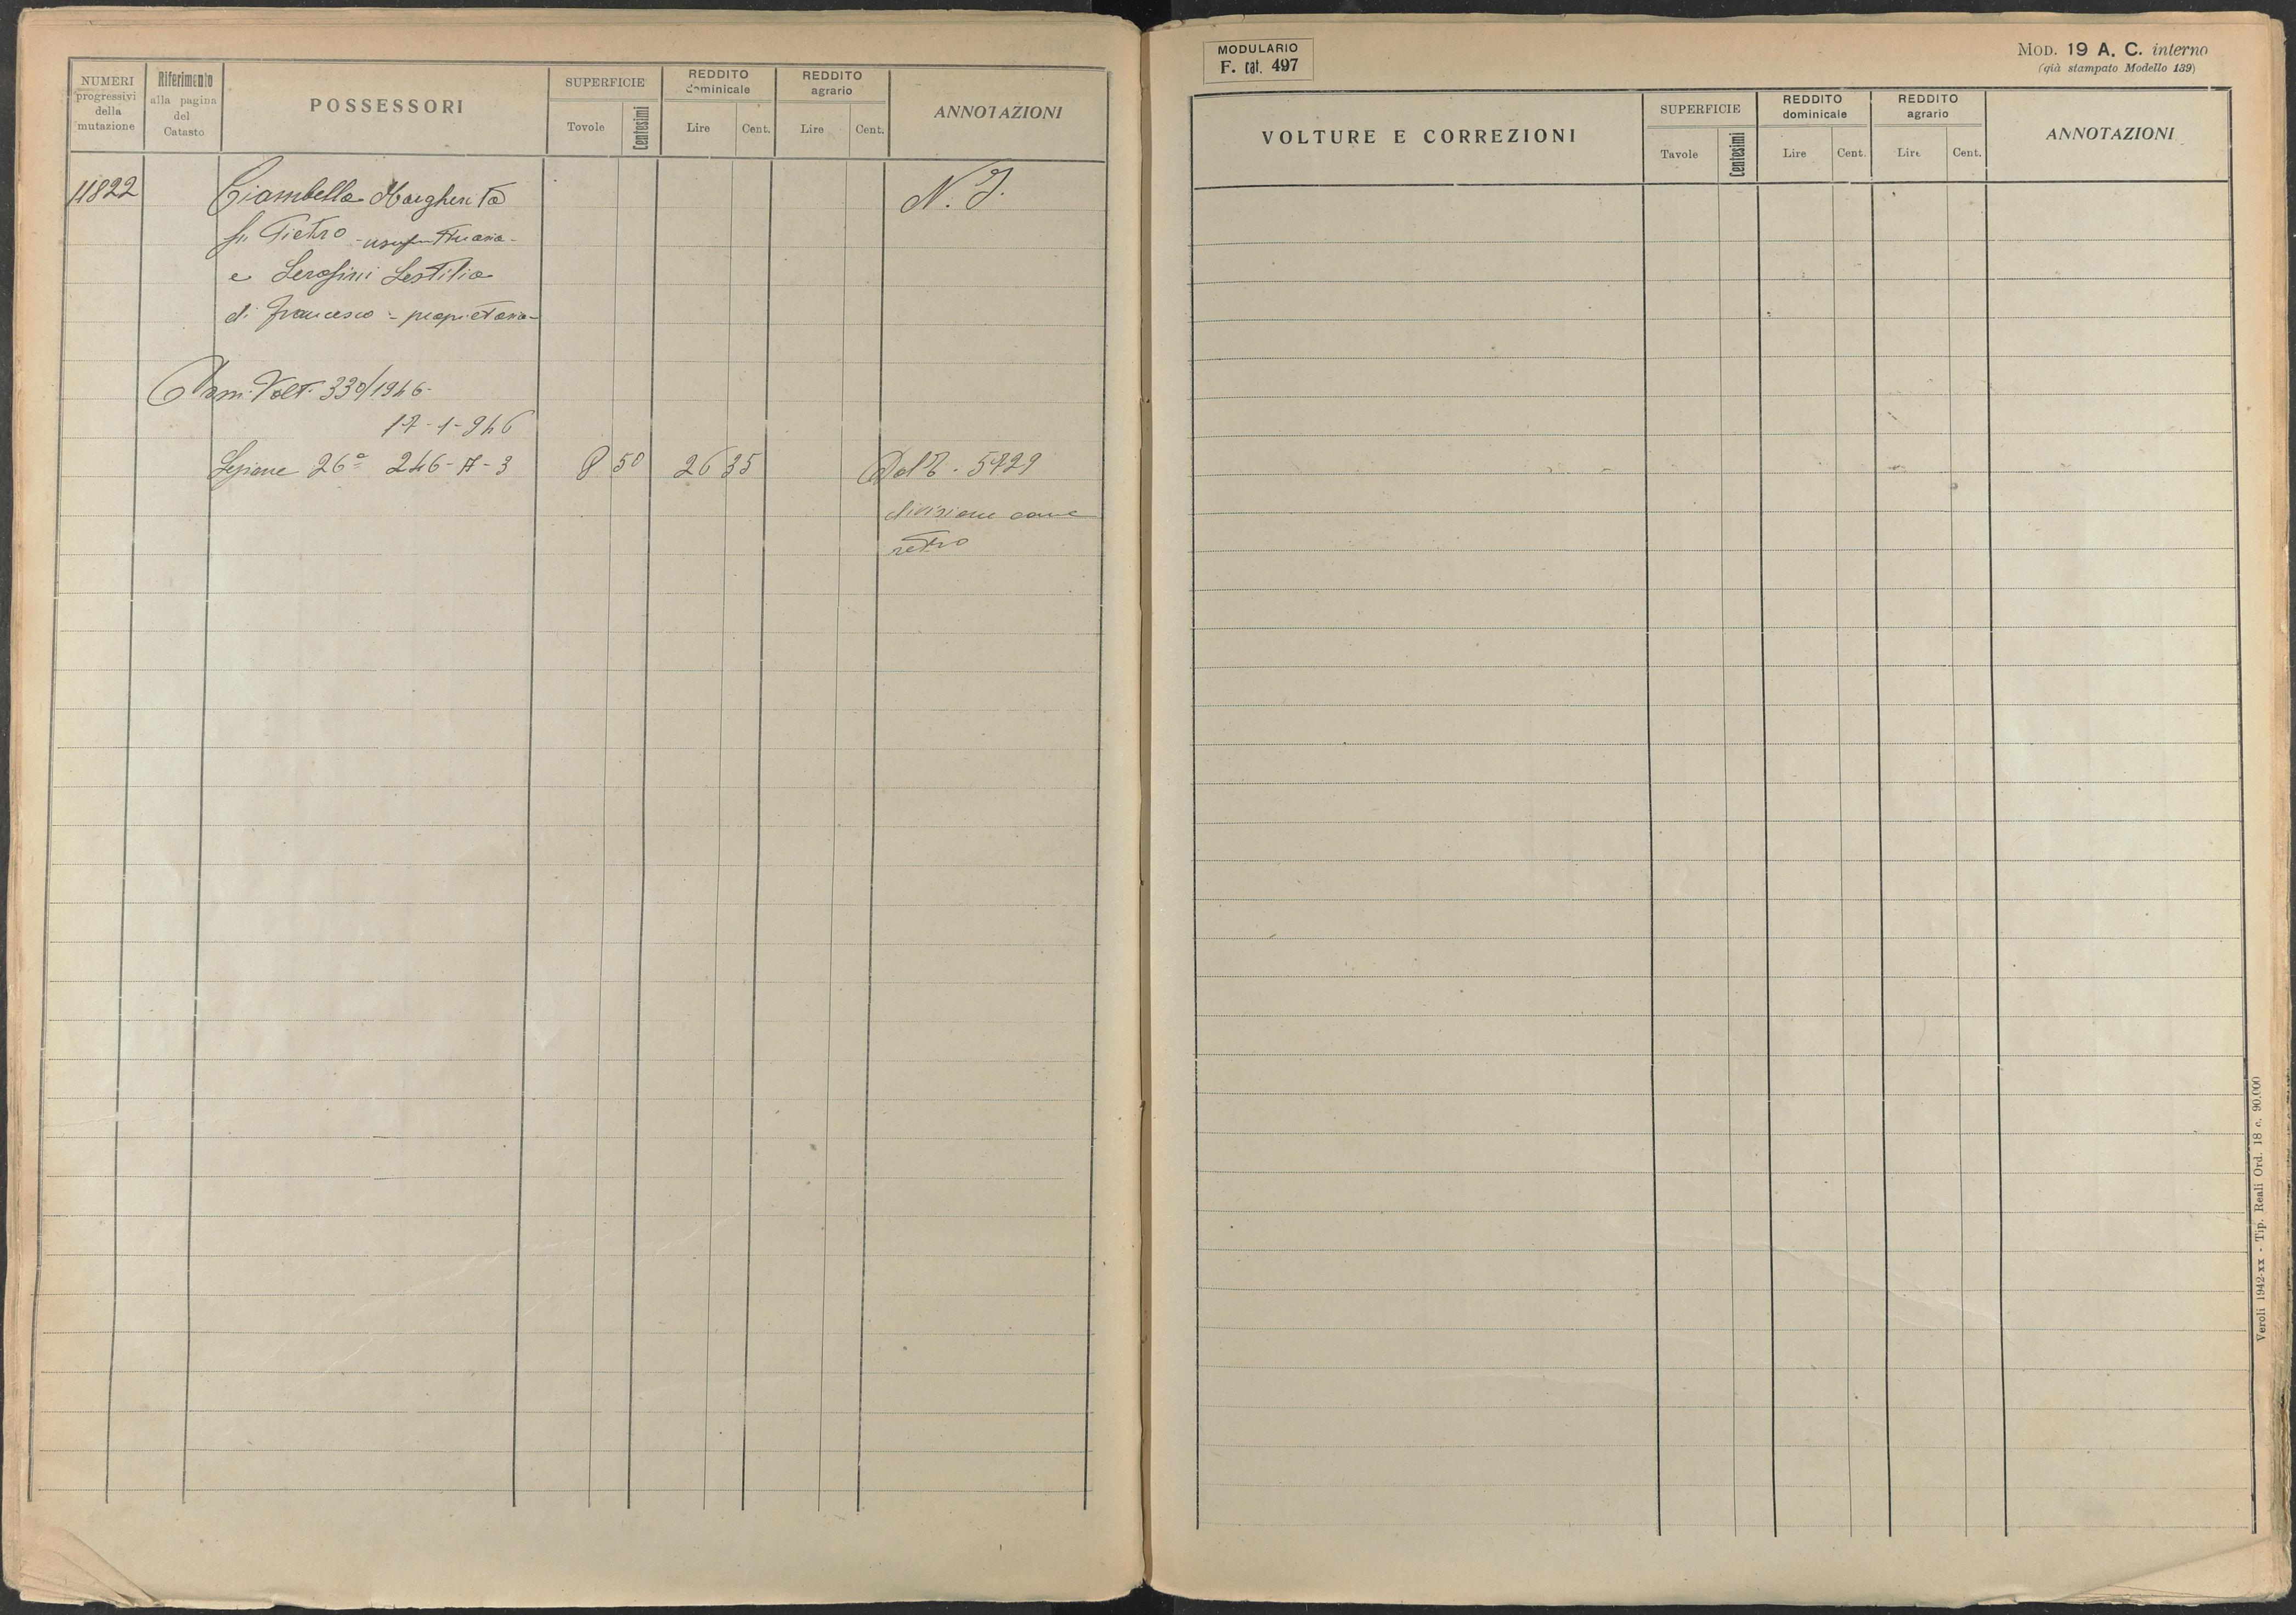 NUMERI progressivi della mutazione
Riferimento alla pagina del Catasto
POSSESSORI
SUPERFICIE
Tavole
Centesimi
REDDITO dominicale
Lire
Cent.
REDDITO agrario
Lire
Cent.
ANNOTAZIONI
11822 Ciambella Margherita N. I.
fu Pietro - usufruttuaria -
e Serafini Sestilia
di Francesco - proprietaria -
Dom. Volt. 330/1946
17-1-946
Sezione 26ª 246-A-3 8 50 26 35 Dal P. 5729
divisione come
retro
MODULARIO
F. cat. 497
MOD. 19 A. C. interno
(già stampato Modello 139)
VOLTURE E CORREZIONI
SUPERFICIE
Tavole
Centesimi
REDDITO dominicale
Lire
Cent.
REDDITO agrario
Lire
Cent.
ANNOTAZIONI
Veroli 1942-XX - Tip. Reali Ord. 18 c. 90.000